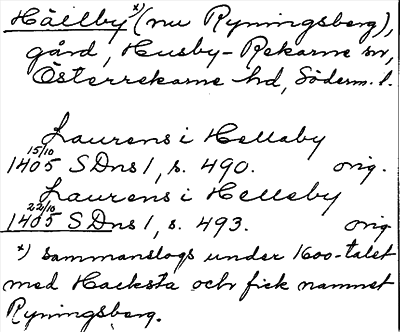 Hällby x) (nu Ryningsberg),
gård, Husby-Rekarne sn,
Österrekarne hd, Söderm. l.
Laurens i Hellaby
15/10
1405 SDns 1, s. 490. orig.
Laurens i Helleby
22/10
1405 SDns 1, s. 493. orig
x) sammanslogs under 1600-talet
med Hacksta och fick namnet
Ryningsberg.